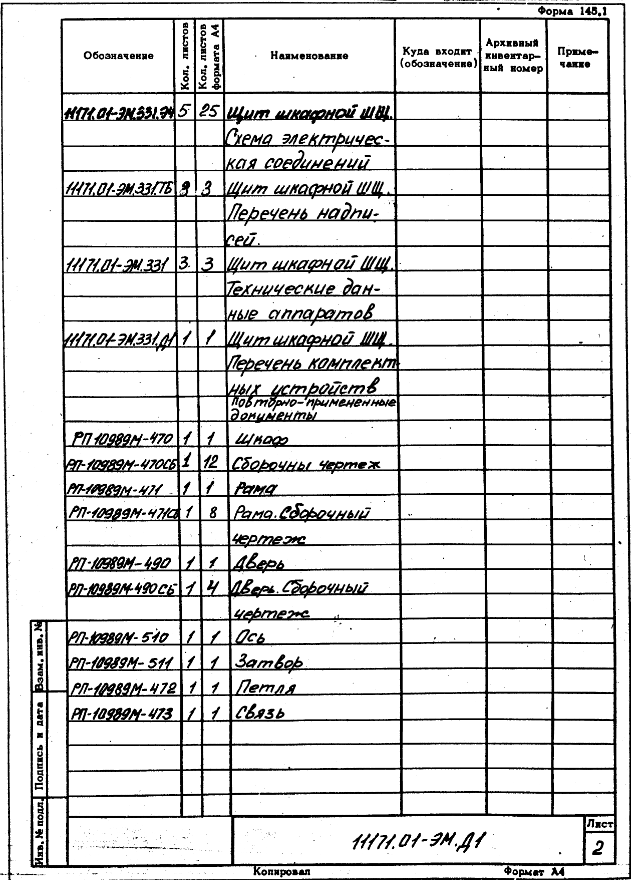 Форма 145.1
Обозначение Кол. листов Кол. листов формата А4 Наименование Куда входит (обозначение) Архивный инвентарный номер Примечание
11171.01-ЭМ.331.Э4 5 25 Щит шкафной ШЩ.
Схема электричес-
кая соединений
11171.01-ЭМ.331.ТБ 3 Щит шкафной ШЩ.
Перечень надпи-
сей.
11171.01-ЭМ.331 3. 3 Щит шкафной ШЩ.
Технические дан-
ные аппаратов
11171.01-ЭМ.331.Д1 1 1 Щит шкафной ШЩ.
Перечень комплект-
ных устройств
Повторно-примененные
документы
РП 10989М-470 1 1 Шкаф
РП-10989М-470СБ 1 12 Сборочны чертеж
РП-10989М-471 1 1 Рама
РП-10989М-471СБ 1 8 Рама. Сборочный
чертеж
РП-10989М-490 1 1 Дверь
РП-10989М-490СБ 1 4 Дверь. Сборочный
чертеж
РП-10989М-510 1 1 Ось
РП-10989М-511 1 1 Затвор
РП-10989М-472 1 1 Петля
РП-10989М-473 1 1 Связь
Взам. инв. №
Подпись и дата
Инв. № подл.
11171.01-ЭМ.Д1
Лист
2
Копировал Формат А4